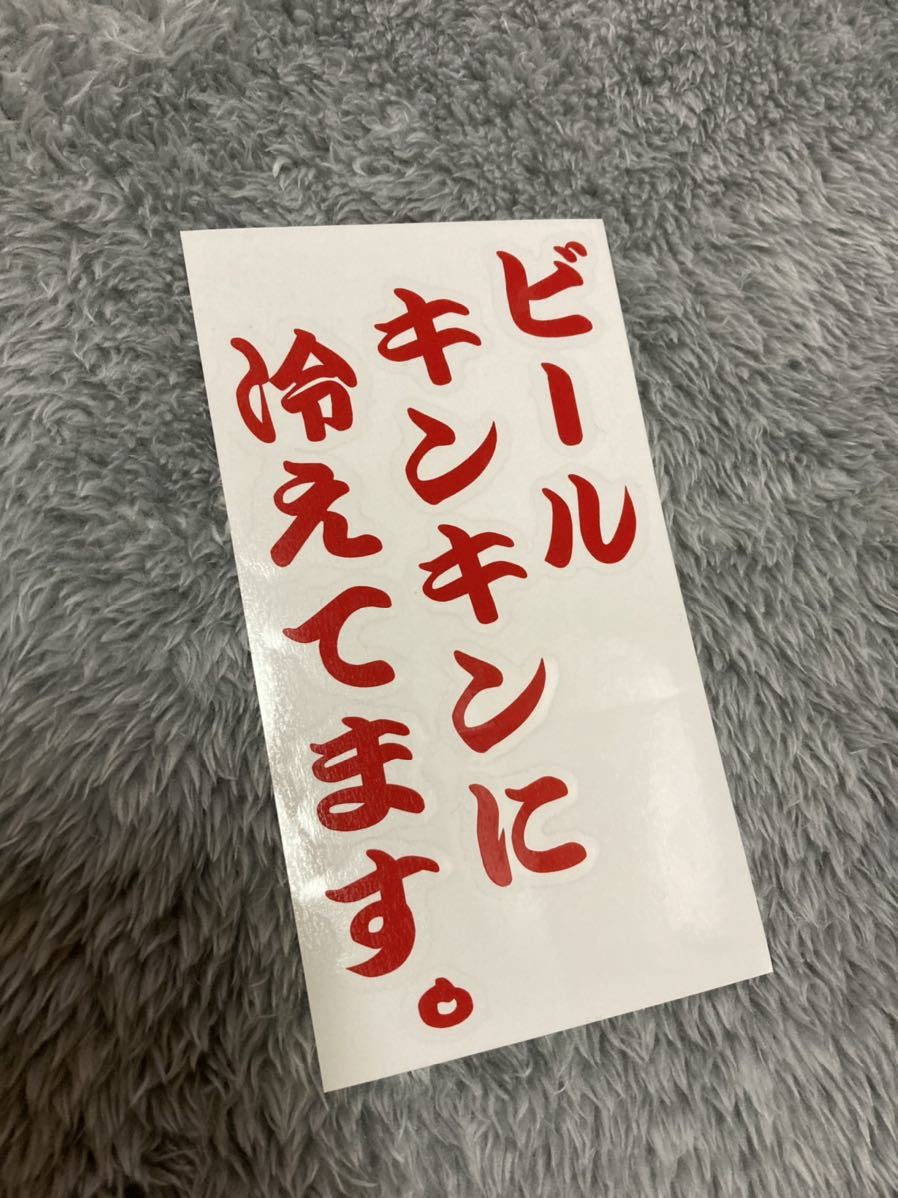 ビール
キンキンに
冷えてます。